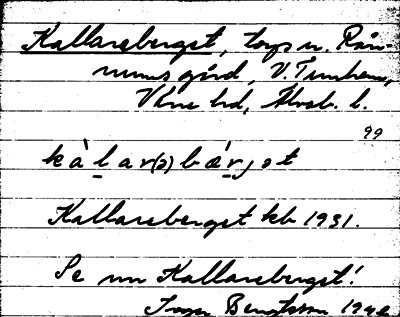 Kallareberget, torp u. Rån-
nums gård, V. Tunhems,
Väne hd, Älvsb. l.
99
kàḷar(ə)bær̥jət
Kallareberget kb 1931.
Se nu Kallareberget!
Inger Bengtsson 1942